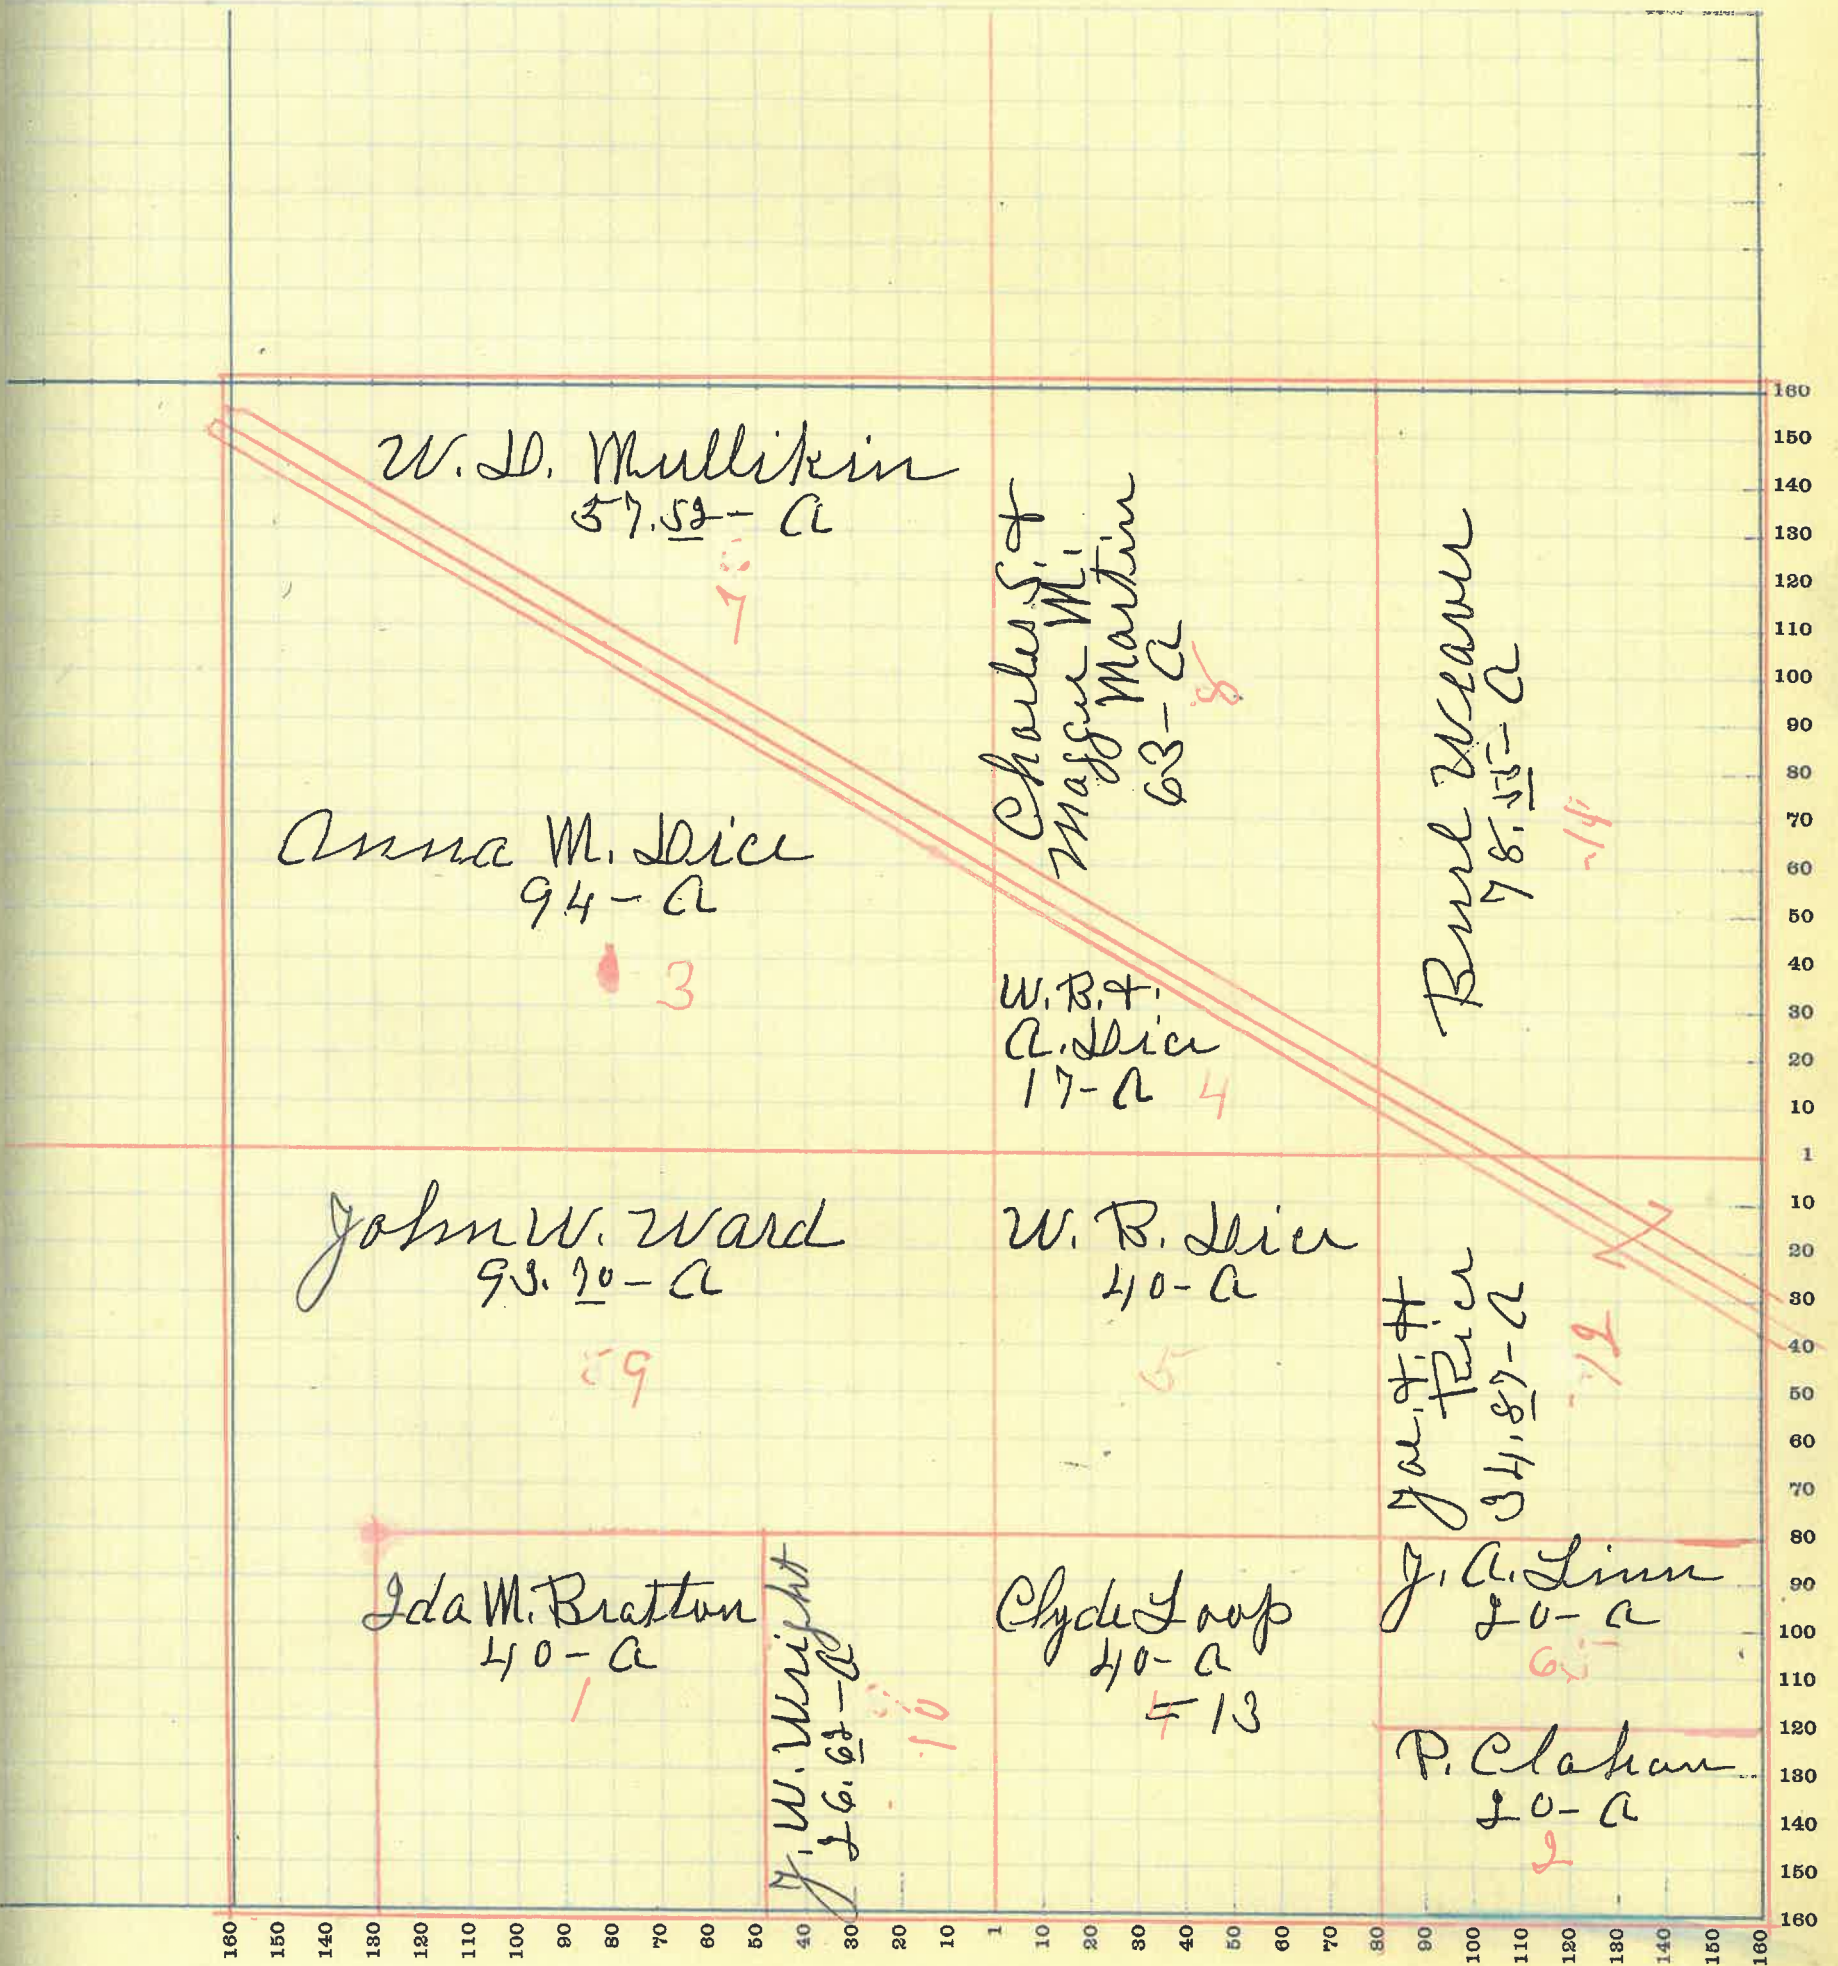 W. D. Mullikin
57.52 - A
7
Charles S. &
Maggie M.
Martin
63 - A
8
Burl Weaver
78.55 - A
14
Anna M. Dice
94 - A
3
W. B. &
A. Dice
17 - A
4
John W. Ward
93.70 - A
9
W. B. Dice
40 - A
5
Jas. & H
Rice
34.87 - A
12
Ida M. Bratton
40 - A
1
J. W. Wright
26.62 - A
10
Clyde Loop
40 - A
= 13
J. A. Linn
20 - A
6
P. Clahan
20 - A
2
160
150
140
130
120
110
100
90
80
70
60
50
40
30
20
10
1
10
20
30
40
50
60
70
80
90
100
110
120
130
140
150
160
160 150 140 130 120 110 100 90 80 70 60 50 40 30 20 10 1 10 20 30 40 50 60 70 80 90 100 110 120 130 140 150 160